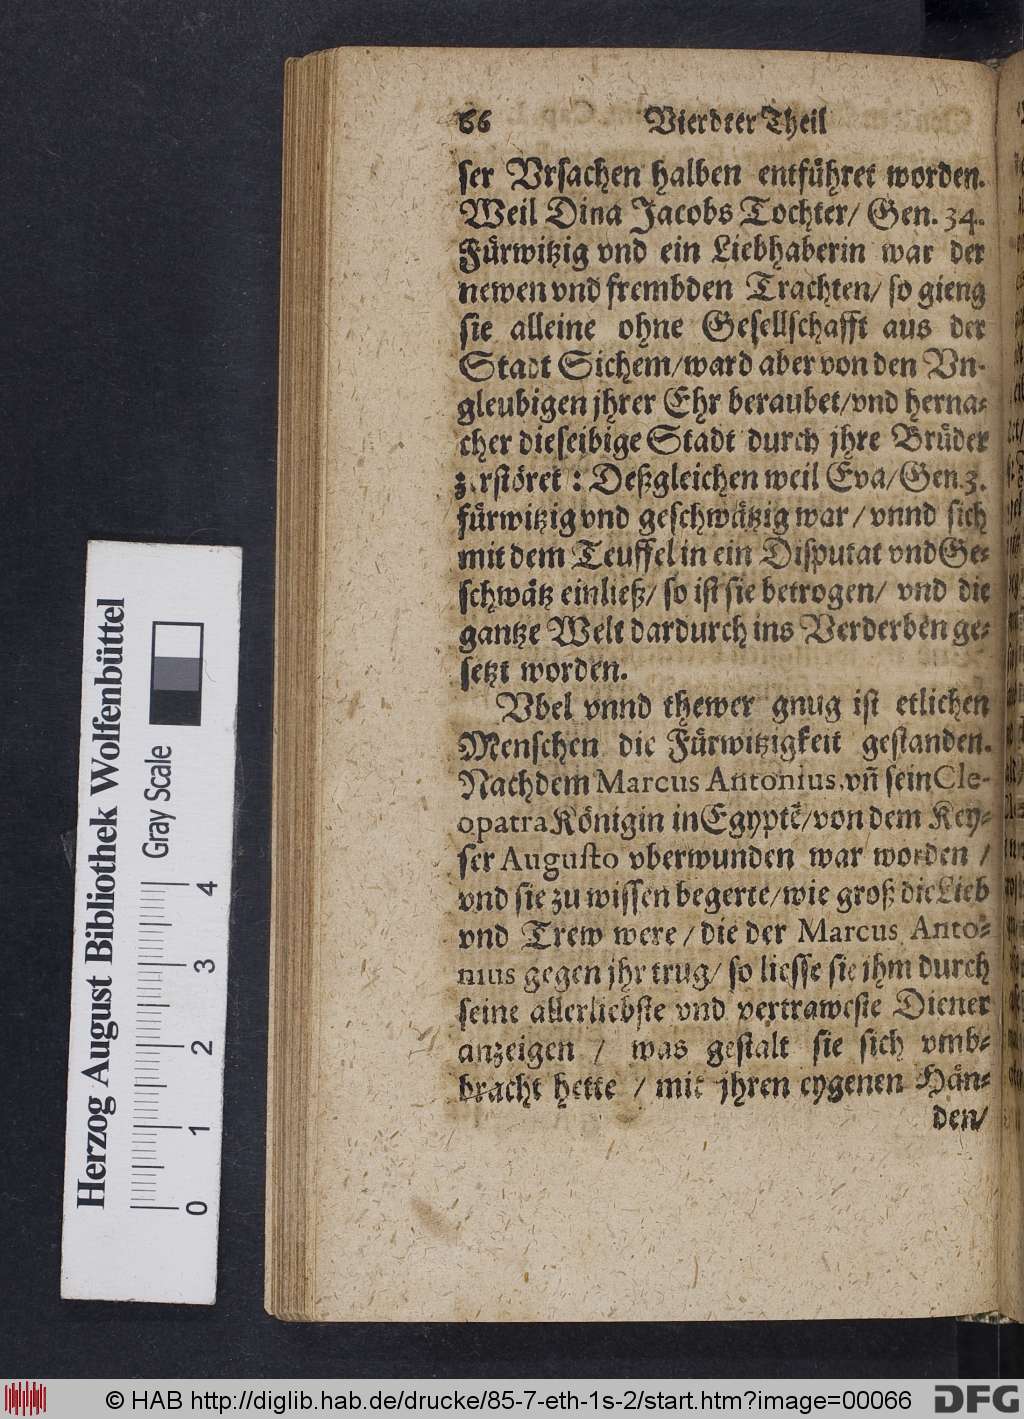 66 Vierdter Theil
ser Vrsachen halben entführet worden.
Weil Dina Jacobs Tochter/ Gen. 34.
Fürwitzig vnd ein Liebhaberin war der
newen vnd frembden Trachten/ so gieng
sie alleine ohne Gesellschafft aus der
Stadt Sichem/ward aber von den Vn-
gleubigen jhrer Ehr beraubet/vnd herna-
cher dieselbige Stadt durch jhre Brüder
zerstöret : Deßgleichen weil Eva/Gen.3.
fürwitzig vnd geschwätzig war / vnnd sich
mit dem Teuffel in ein Disputat vnd Ge-
schwätz einließ/ so ist sie betrogen/ vnd die
gantze Welt dardurch ins Verderben ge-
setzt worden.
Vbel vnnd thewer gnug ist etlichen
Menschen die Fürwitzigkeit gestanden.
Nachdem Marcus Antonius, vñ sein Cle-
opatra Königin in Egyptẽ/von dem Key-
ser Augusto vberwunden war worden /
vnd sie zu wissen begerte/wie groß die Lieb
vnd Trew were / die der Marcus Anto-
nius gegen jhr trug/ so liesse sie jhm durch
seine allerliebste vnd vertraweste Diener
anzeigen / was gestalt sie sich vmb-
bracht hette / mit jhren eygenen Hän-
den/
Herzog August Bibliothek Wolfenbüttel
Gray Scale
0 1 2 3 4
© HAB http://diglib.hab.de/drucke/85-7-eth-1s-2/start.htm?image=00066
DFG